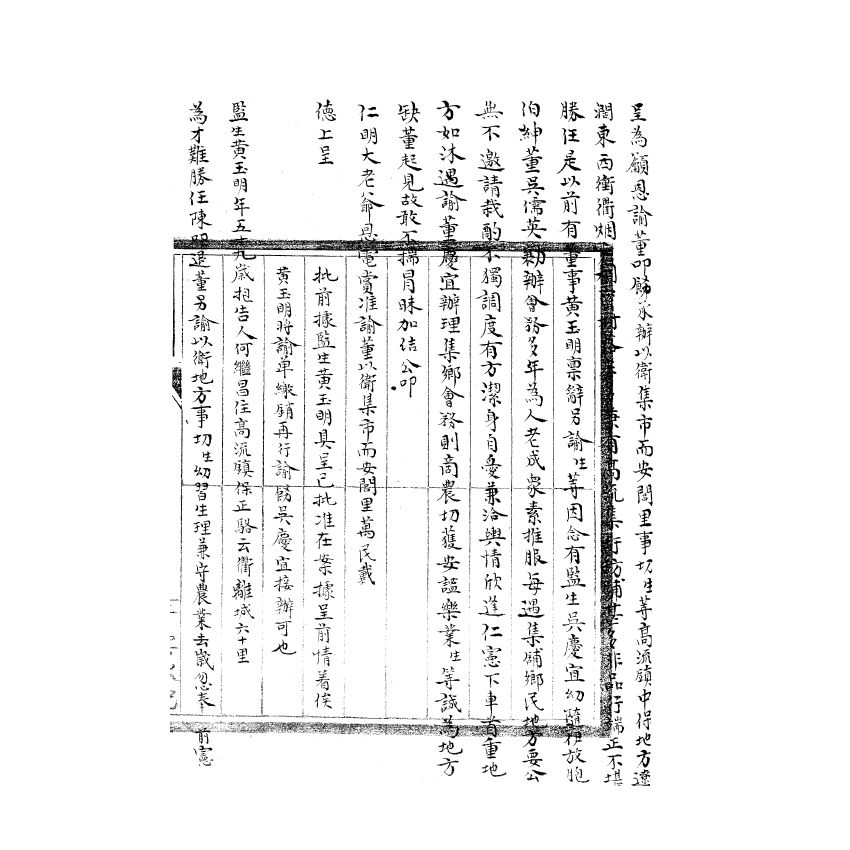 呈為籲恩諭董叩飭承辦以衛集市而安閭里事切生等高流鎮中保地方遼
濶東西衝衢烟集行坊鋪甚多非品行端正不堪
勝任是以前有董事黃玉明稟辭另諭生等因念有監生吳慶宜幼隨胞
伯紳董吳儒英勷辦會務多年為人老成衆素推服每遇集鋪鄉民地方要公
無不邀請裁酌不獨調度有方潔身自愛兼洽輿情欣逢仁憲下車首重地
方如沐遇諭董慶宜辦理集鄉會務則商農切獲安謐樂業生等誠為地方
缺董起見故敢不揣冒昧加結公叩
仁明大老爺恩電賞准諭董以衛集市而安閭里萬民戴
德上呈
批前據監生黃玉明具呈已批准在案據呈前情着俟
黃玉明將諭单繳銷再行諭飭吳慶宜接辦可也
監生黃玉明年五十九歲抱告人何繼昌住高流鎮保正駱云衢離城六十里
為才難勝任陳退董另諭以衛地方事切生幼習生理兼守農業去歲忽奉前憲